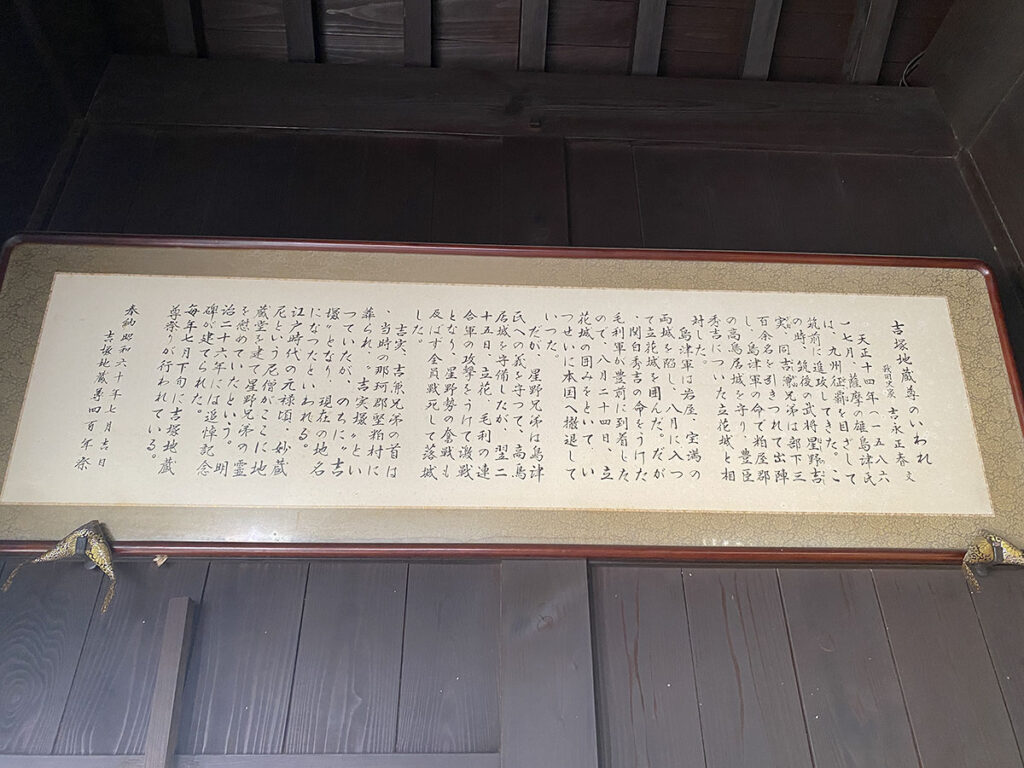 吉塚地蔵尊のいわれ
戦国史家 吉永正春 文
天正十四年(一五八六
)七月、薩摩の雄島津氏
は、九州征覇を目ざして
筑前に進攻してきた。こ
の時、筑後の武将星野吉
実、同吉兼兄弟は部下三
百余名を引きつれて出陣
し、島津軍の命で粕屋郡
の高鳥居城を守り、豊臣
秀吉についた立花城と相
対した。
島津軍は岩屋、宝満の
両城を陥し、八月に入つ
て立花城を囲んだ。だが
、関白秀吉の命をうけた
毛利軍が豊前に到着した
ので、八月二十四日、立
花城の囲みをといて、い
つせいに本国へ撤退して
いつた。
だが、星野兄弟は島津
氏への義を守つて、高鳥
居城を守備したが、翌二
十五日、立花、毛利の連
合軍の攻撃をうけて激戦
となり、星野勢の奮戦も
及ばず全員戦死して落城
した。
吉実、吉兼兄弟の首は
、当時の那珂郡堅粕村に
葬られ、"吉実塚"とい
つていたが、のちに"吉
塚"となり、現在の地名
になつたといわれる。
江戸時代の元禄頃、妙蔵
尼という尼僧がここに地
蔵堂を建て星野兄弟の霊
を慰めていたという。明
治二十六年には追悼記念
碑が建てられた。
毎年七月下旬に吉塚地蔵
尊祭りが行われている。
奉納昭和六十年七月吉日
吉塚地蔵尊四百年祭